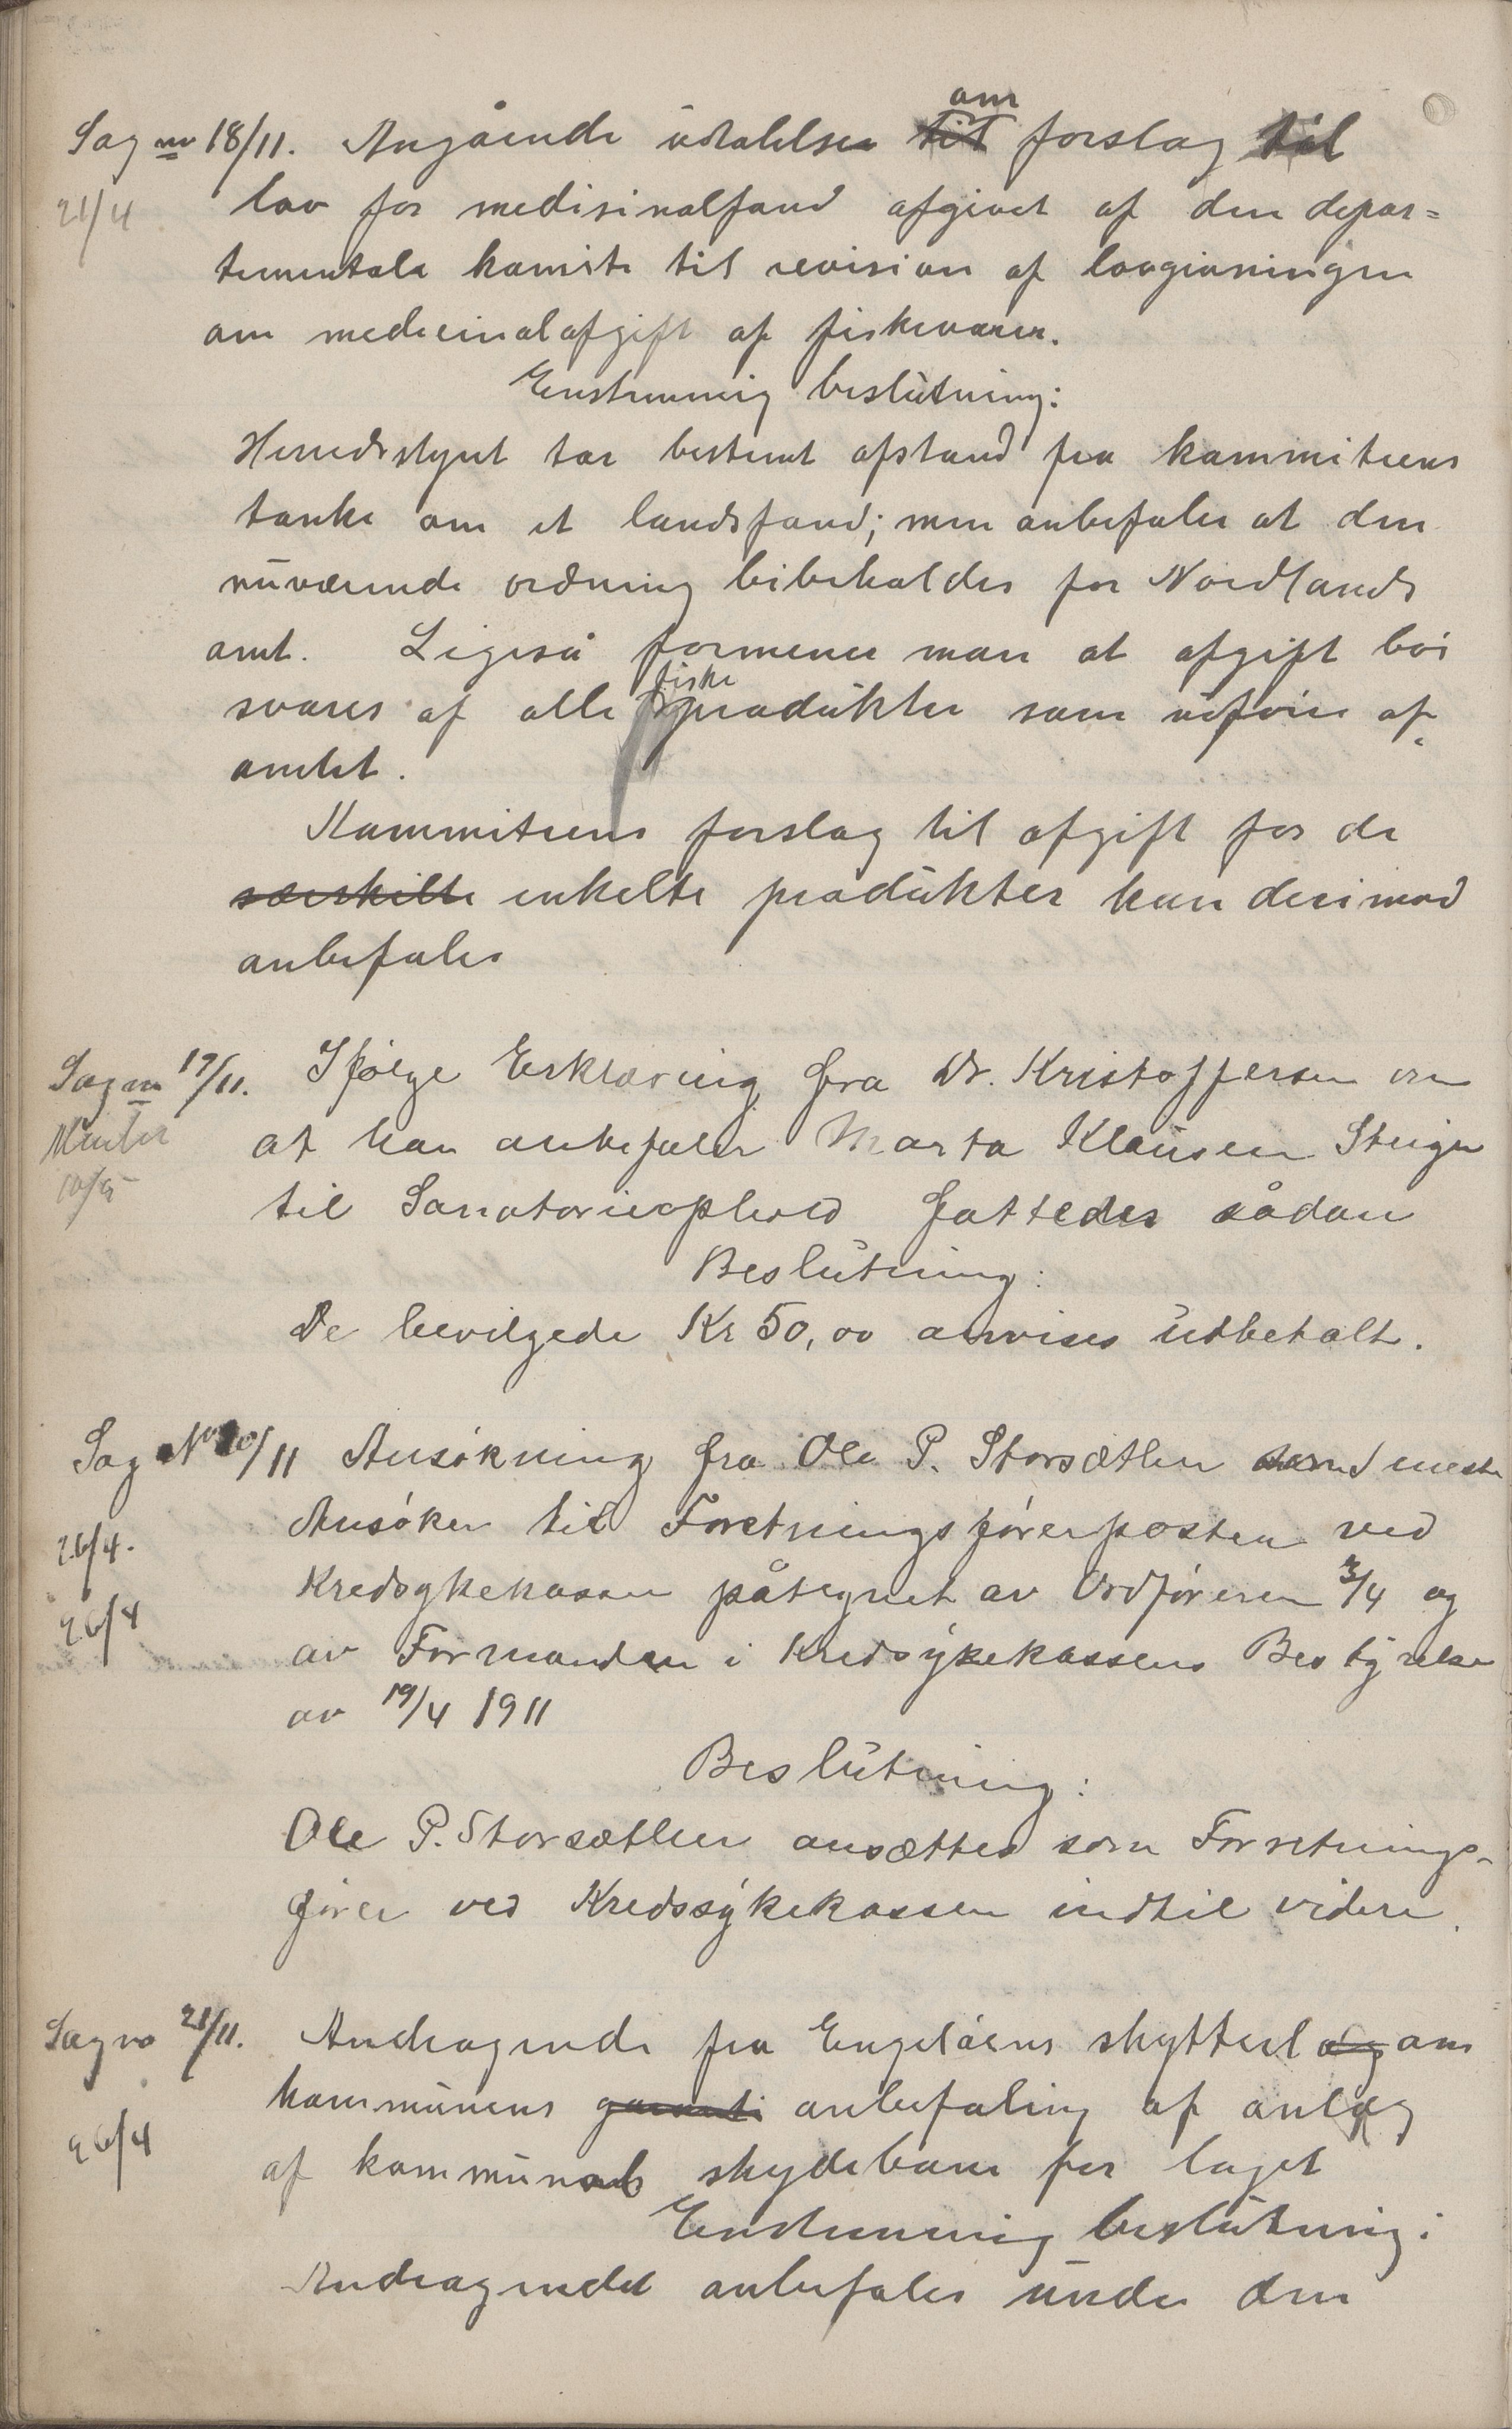 om
Sag no 18/11. Angående udtalelser til forslag til
21/4 lov for medisinalfond afgivet af den depar=
tementale komite til revision af lovgivningen
om medicinalafgift af fiskevarer.
Enstemmig beslutning:
Herredsstyret tar bestemt afstand fra kommiteens
tanke om et landsfond; men anbefaler at den
nuværende ordning bibeholdes for Nordlands
amt. Ligeså formener man at afgift bör
fiske
svares af alle produkter som udföres af
amtet.
Kommiteens forslag til afgift for de
særskilte enkelte produkter kan derimod
anbefales
Sag no 19/11. Ifölge Erklæring fra Dr. Kristoffersen om
at han anbefaler Marta Klausen Steigen
10/5 til Sanatorieophold fattedes sådan
Beslutning:
De bevilgede Kr 50,00 anvises udbetalt.
Sag No 20/11 Ansökning fra Ole P. Storsætlen som eneste
26/4. Ansöker til Foretningsförerposten ved
Kredsykekassen påtegnet av Ordföreren 3/4 og
26/4 av Formanden i Kredsykekassens Bestyrelse
av 19/4 1911
Beslutning:
Ole P. Storsætlen ansættes som Forretnings-
förer ved Kredssykekassen indtil videre.
Sag no 21/11. Andragende fra Engelöens skytterlag om
kommunens garanti anbefaling af anlæg
26/4 af kommunal skydebane for laget
Enstemmig beslutning:
Andragendet anbefales under den